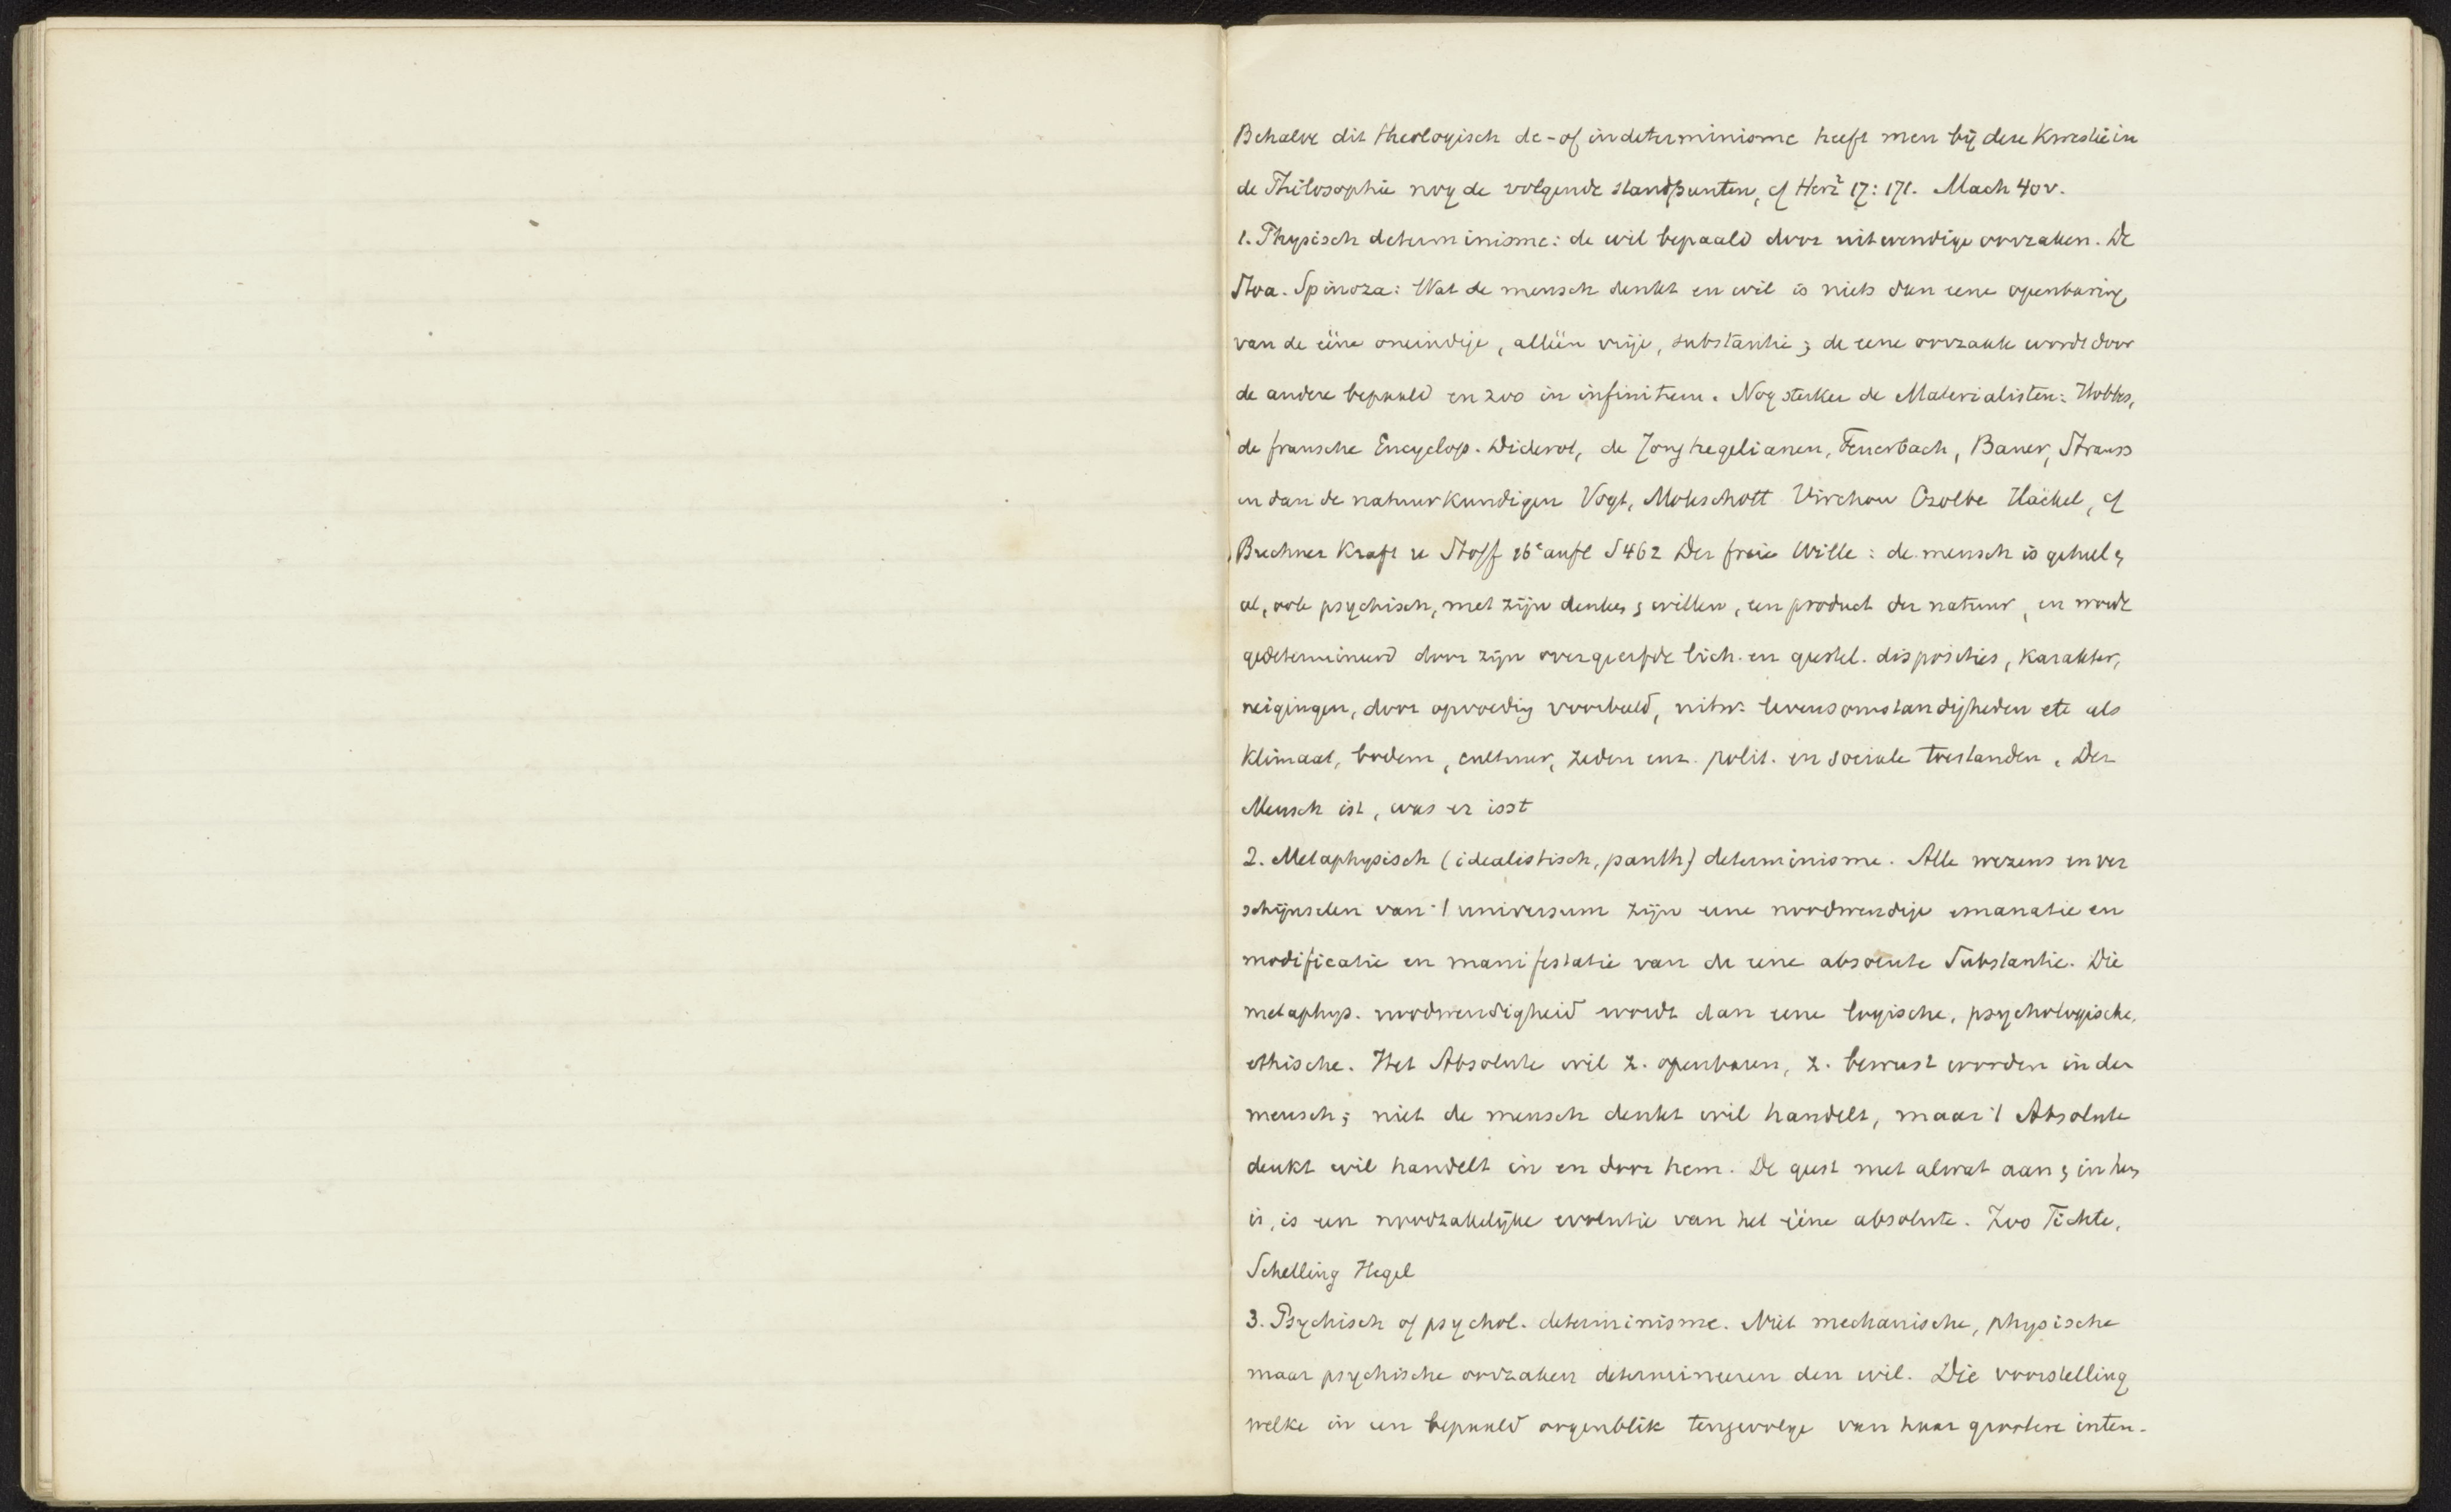 Behalve dit theologisch de- of indeterminisme heeft men bij deze kwestie in
de Philosophie nog de volgende standpunten, cf Herz² 17: 171. Mach 40v.
1. Physisch determinisme: de wil bepaald door uitwendige oorzaken. De
Stoa. Spinoza: Wat de mensch denkt en wil is niets dan eene openbaring
van de ééne oneindige, alléén vrije, substantie; de eene oorzaak wordt door
de andere bepaald en zoo in infinitum. Nog sterker de Materialisten: Hobbes,
de fransche Encyclop. Diderot, de Jonghegelianen, Feuerbach, Bauer, Strauss
en dan de natuurkundigen Vogt, Moleschott Virchow Czolbe Häckel, cf
Buchner Kraft u Stoff 16e aufl S 462 Der freie Wille: de mensch is geheel &
al, ook psychisch, met zijn denken & willen, een product der natuur, en wordt
gedetermineerd door zijn overgeerfde lich. en geestel. disposities, karakter,
neigingen, door opvoeding voorbeeld, uitw. levensomstandigheden etc als
klimaat, bodem, cultuur, zeden enz. polit. en sociale toestanden. Der
Mensch ist, was er isst
2. Metaphysisch (idealistisch, panth) determinisme. Alle wezens en ver
schijnselen van 't universum zijn eene noodwendige emanatie en
modificatie en manifestatie van de eene absolute Substantie. Die
metaphys. noodwendigheid wordt dan eene logische, psychologische,
ethische. Het Absolute wil z. openbaren, z. bewust worden in den
mensch; niet de mensch denkt wil handelt, maar 't Absolute
denkt wil handelt in en door hem. De geest met alwat aan & in hem
is, is een noodzakelijke evolutie van het ééne absolute. Zoo Fichte,
Schelling Hegel
3. Psychisch of psychol. determinisme. Niet mechanische, physische
maar psychische oorzaken determineeren den wil. Die voorstelling
welke in een bepaald oogenblik tengevolge van haar grootere inten-